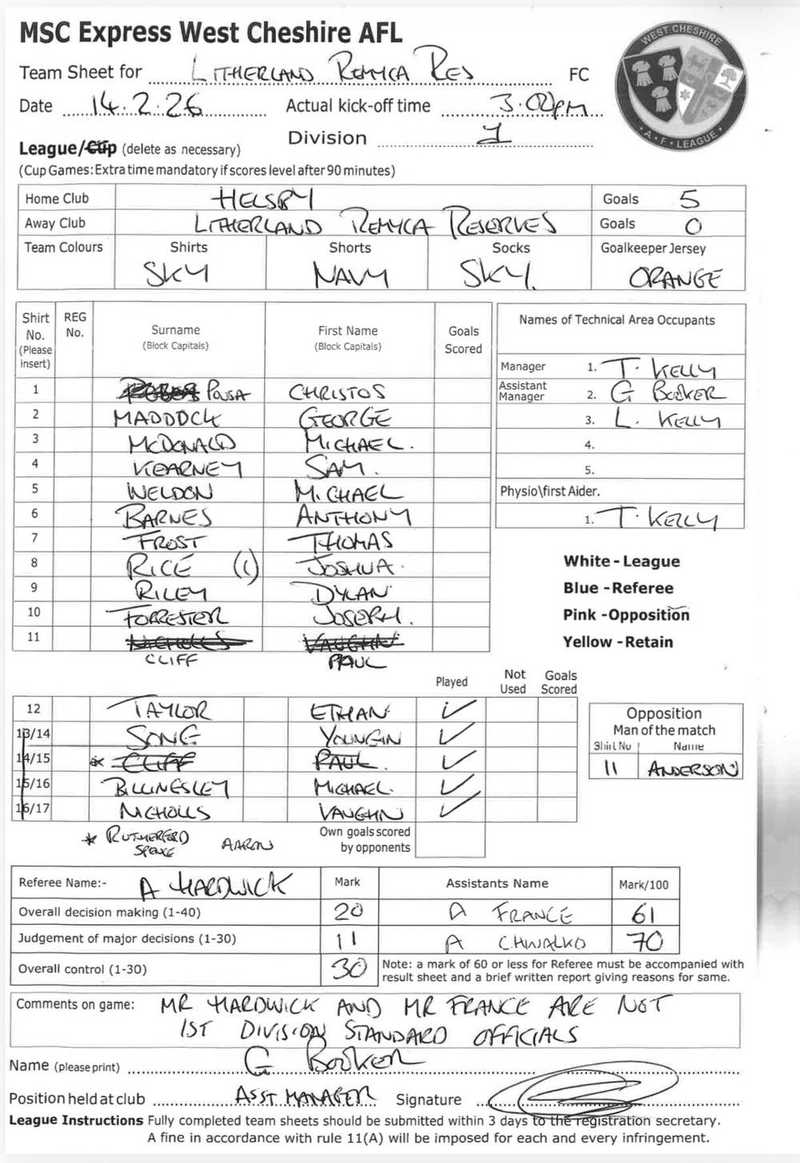 MSC Express West Cheshire AFL
WEST CHESHIRE
A.F. LEAGUE
Team Sheet for LITHERLAND REMYCA RES FC
Date 14.2.26 Actual kick-off time 3.00pm
League/Cup (delete as necessary) Division 1
(Cup Games: Extra time mandatory if scores level after 90 minutes)
Home Club HELSBY Goals 5
Away Club LITHERLAND REMYCA RESERVES Goals 0
Team Colours Shirts Shorts Socks Goalkeeper Jersey
SKY NAVY SKY. ORANGE
Shirt No. (Please insert) REG No. Surname (Block Capitals) First Name (Block Capitals) Goals Scored
1 POUSA CHRISTOS
2 MADDOCK GEORGE
3 MCDONALD MICHAEL.
4 KEARNEY SAM.
5 WELDON MICHAEL
6 BARNES ANTHONY
7 FROST THOMAS
8 RICE (1) JOSHUA.
9 RILEY DYLAN
10 FORRESTER JOSEPH.
11 NICHOLLS VAUGHN
CLIFF PAUL
Names of Technical Area Occupants
Manager 1. T. KELLY
Assistant Manager 2. G BOOKER
3. L. KELLY
4.
5.
Physio\first Aider.
1. T. KELLY
White - League
Blue - Referee
Pink - Opposition
Yellow - Retain
Played Not Used Goals Scored
12 TAYLOR ETHAN ✓
13/14 SONG YOUNGIN ✓
14/15 * CLIFF PAUL. ✓
15/16 BILLINGSLEY MICHAEL ✓
16/17 NICHOLLS VAUGHN ✓
* RUTHERFORD AARON
Own goals scored by opponents
Opposition
Man of the match
Shirt No Name
11 ANDERSON
Referee Name:- A HARDWICK Mark Assistants Name Mark/100
Overall decision making (1-40) 20 A FRANCE 61
Judgement of major decisions (1-30) 11 A CHWALKO 70
Overall control (1-30) 30 Note: a mark of 60 or less for Referee must be accompanied with
result sheet and a brief written report giving reasons for same.
Comments on game: MR HARDWICK AND MR FRANCE ARE NOT
1ST DIVISION STANDARD OFFICIALS
Name (please print) G BOOKER
Position held at club ASST MANAGER Signature
League Instructions Fully completed team sheets should be submitted within 3 days to the registration secretary.
A fine in accordance with rule 11(A) will be imposed for each and every infringement.